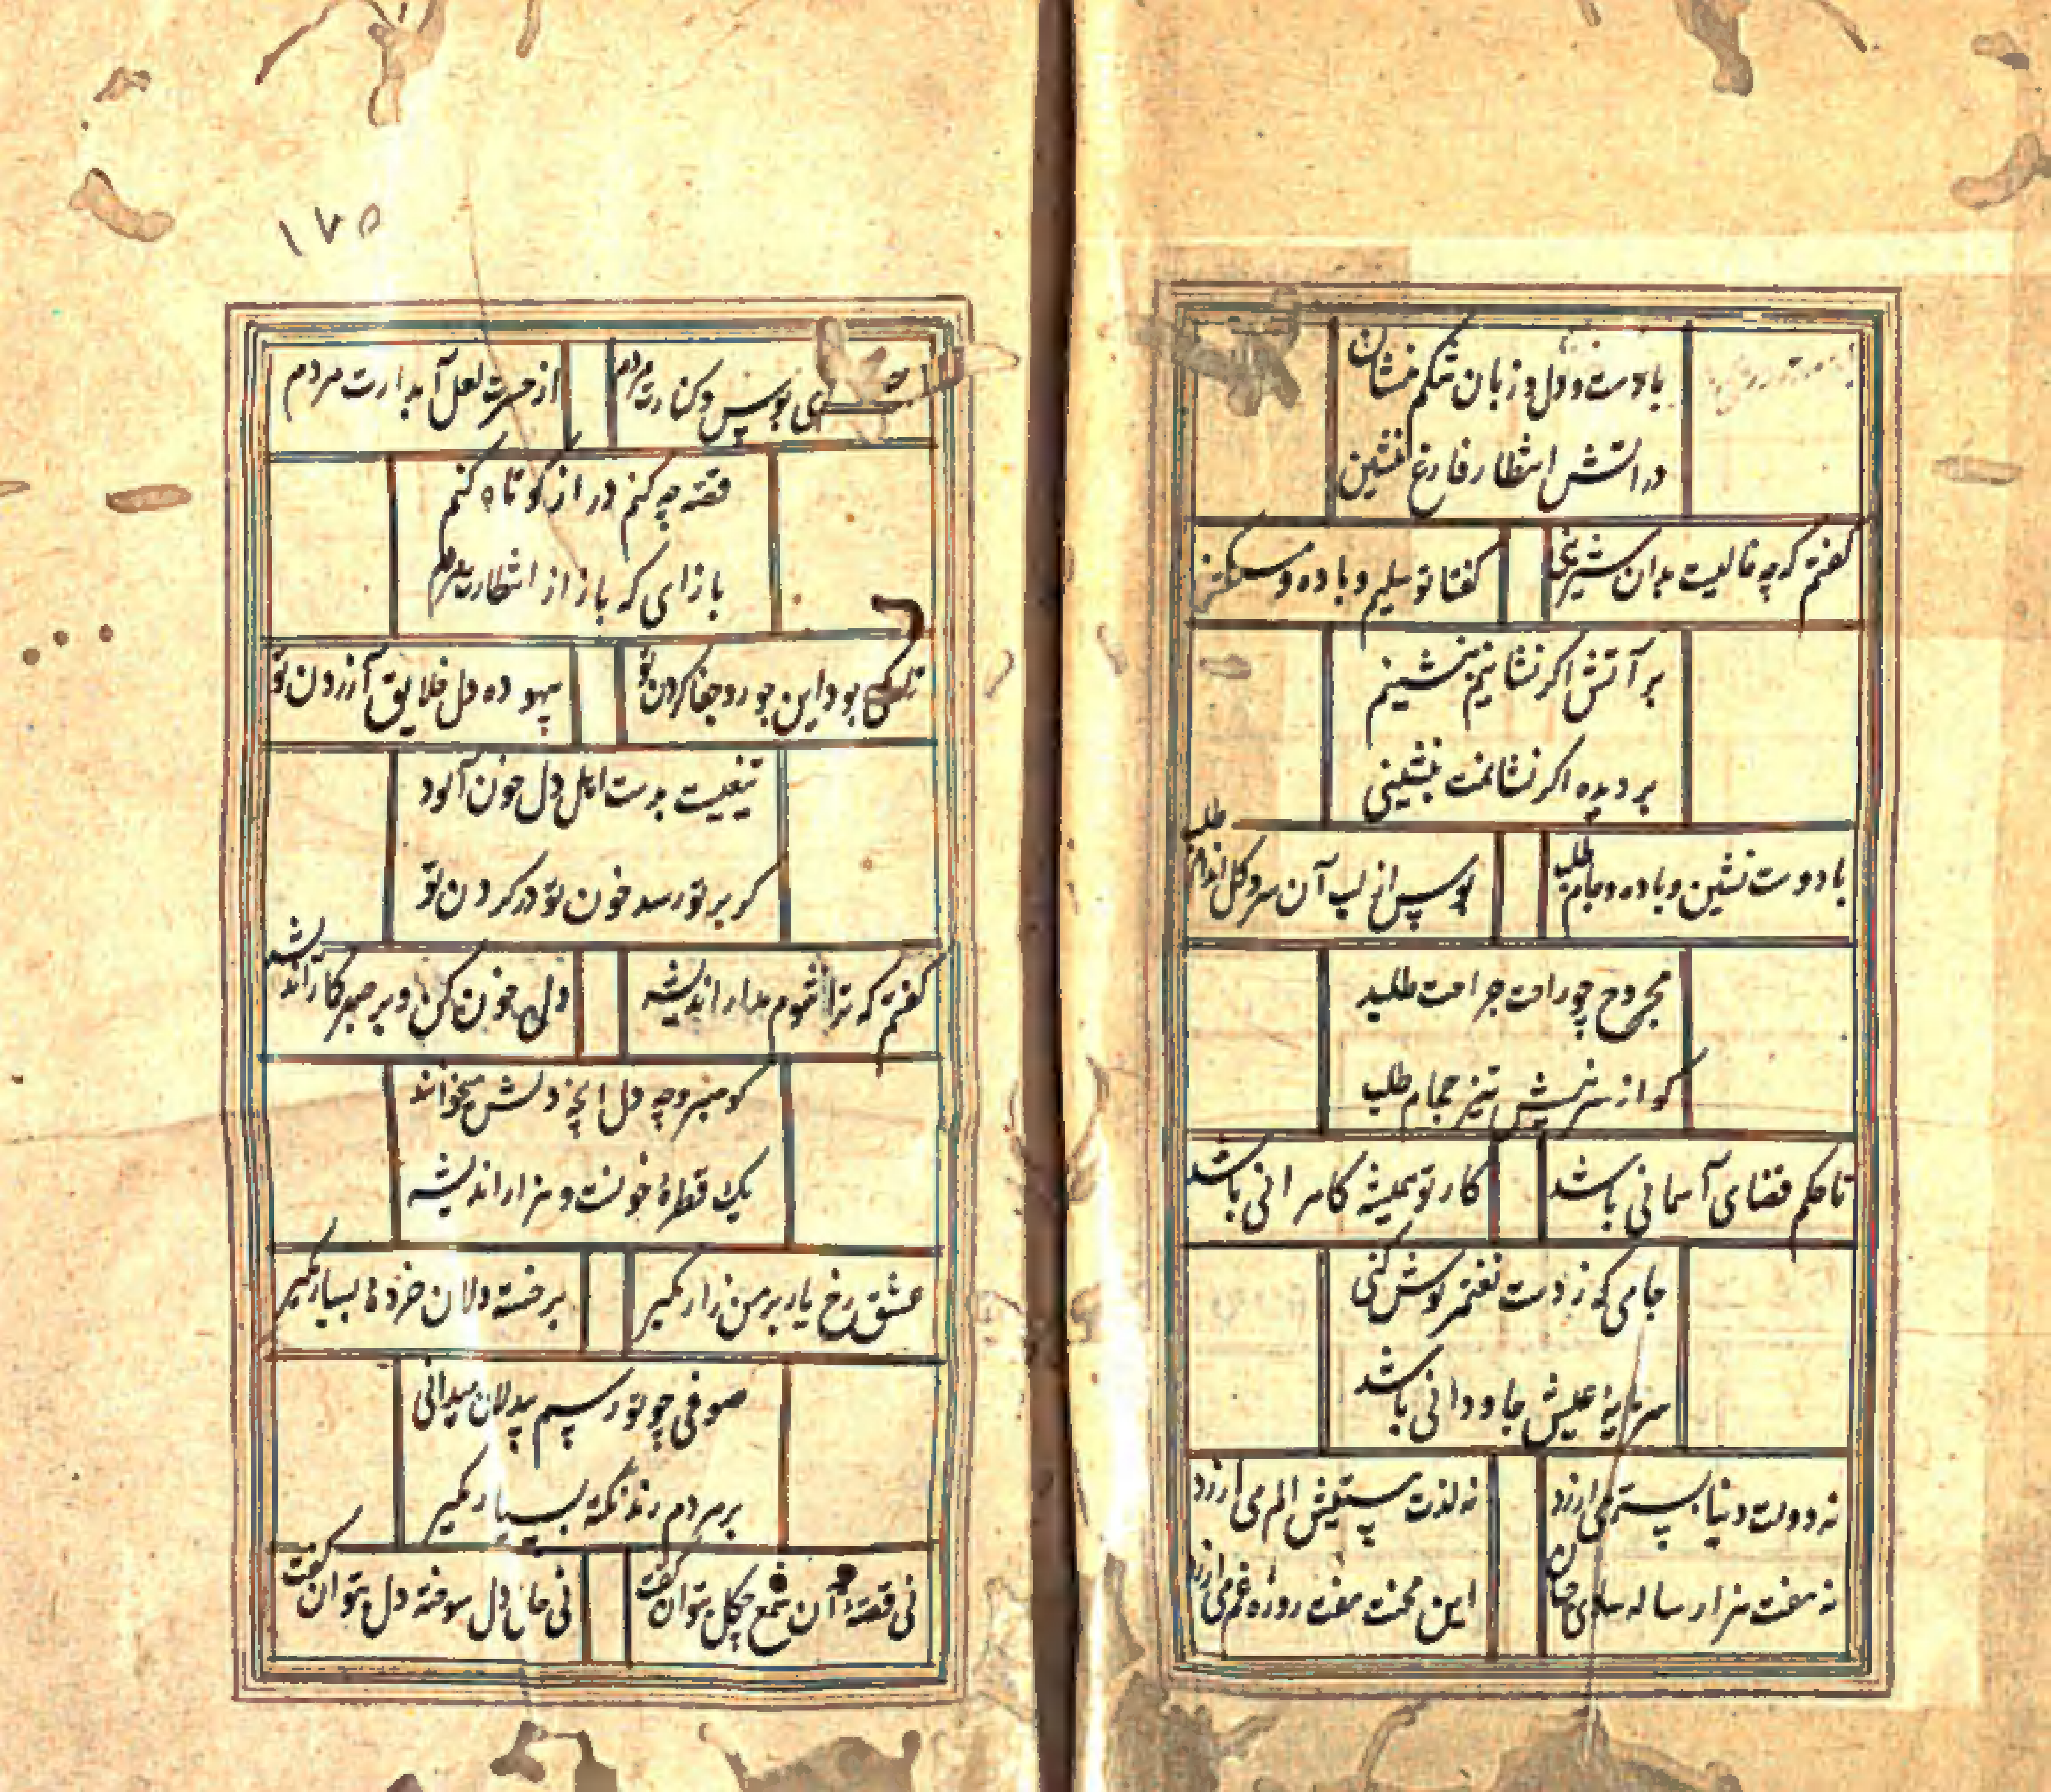 با دوست و دل و زبان تنکم نشان
در آتش انتظار فارغ منشین
کفتم که چه خالیست بدان شیرینی
کفتا تو سلیم و باده و مسکینی
بر آتش اکر نشانیم بنشینم
بر دیده اکر نشانمت ننشینی
با دوست نشین و باده و جام طلب
بوس از لب آن سرو کل اندام طلب
مجروح چو راحت جراحت طلبد
کو از سر نیش تیز حجام طلب
تا حکم قضای آسمانی باشد
کار تو همیشه کامرانی باشد
جامی که ز دست تغتمر نوش کنی
سرمایه عیش جاودانی باشد
نه دولت دنیا بستم می ارزد
نه لذت مستیش الم می ارزد
نه هفت هزار ساله شادی جهان
این محنت هفت روزه غم می ارزد
۱۷۵
ی بوس و کنارت مردم
از حسرت لعل آبدارت مردم
قصه چه کنم دراز کوتاه کنم
بازای که باز از انتظارت مردم
تا کی بود این جور و جفا کردن تو
بیهوده دل خلایق آزردن تو
تیغیست بدست اهل دل خون آلود
کر بر تو رسد خون تو در کردن تو
کفتم که ترا شوم مدار اندیشه
دل خون کن و بر صبر کار اندیشه
کو صبر و چه دل انچه دلش میخوانند
یک قطره خونست و هزار اندیشه
عشق رخ یار بر من زار مکیر
بر خسته دلان خرده بسیار مکیر
صوفی چو تو رسم بیدلان میدانی
بر مردم رند نکته بسیار مکیر
نی قصه آن شمع چکل بتوان کفت
نی حال دل سوخته دل بتوان کفت